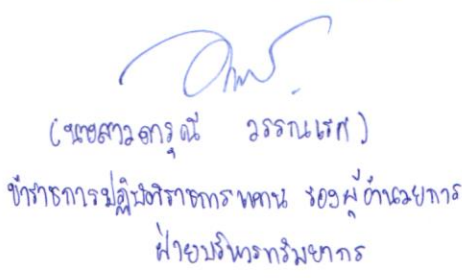 (นางสาวดารุณี วรรณเรศ)
ข้าราชการปฏิบัติราชการแทน รองผู้อำนวยการ
ฝ่ายบริหารทรัพยากร